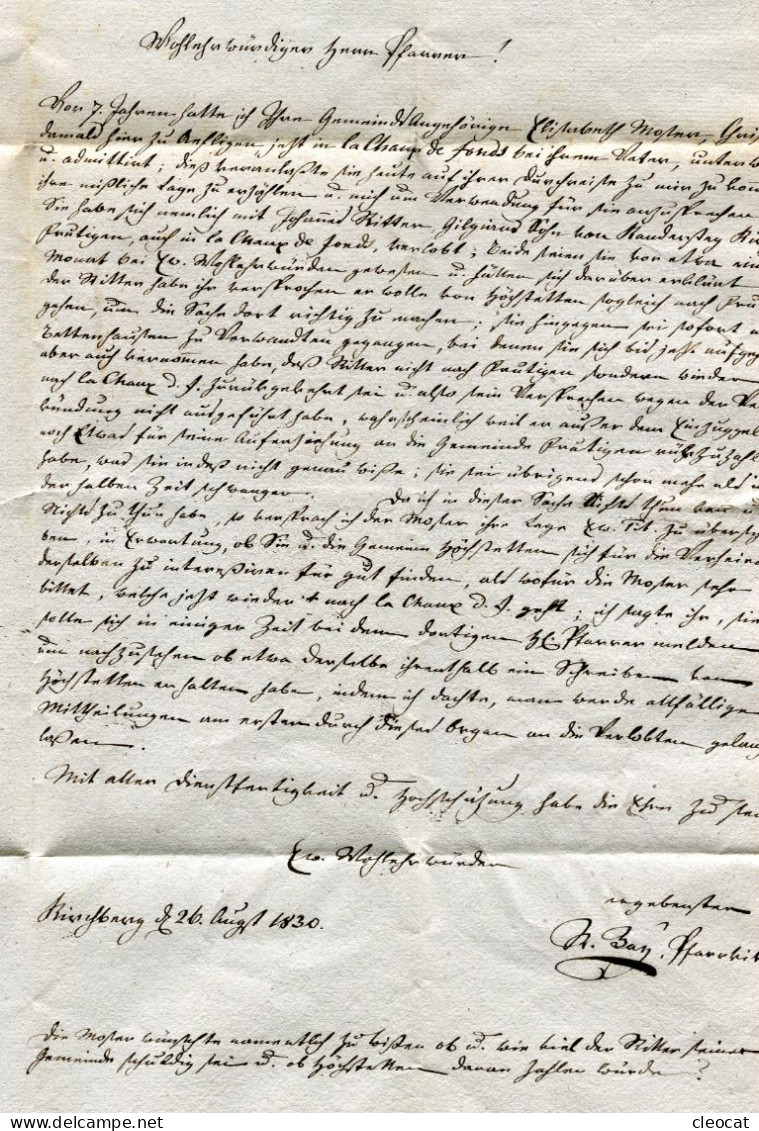 Wohlehrwürdiger Herr Pfarrer!
Vor 7. Jahren hatte ich Ihre Gemeinds Angehörige Elisabeth Moser,
damals hier zu Aefligen jetzt in la Chaux de fonds bei ihrem Vater, unterw
u. admittirt; dieß veranlaßte sie heute auf ihrer Durchreise zu mir zu kom
ihre mißliche Lage zu erzählen u. mich um Verwendung für sie anzusprechen
Sie habe sich nemlich mit Johannes Ritter, Gilgians Sohn von Kandersteg
Frutigen, auch in la Chaux de fonds, verlobt; beide seien sie vor etwa ein
Monat bei Ew. Wohlehrwürden gewesen u. hätten sich darüber erklärt
der Ritter habe ihr versprochen er wolle von Höchstetten sogleich nach Fru
gehen, um die Sache dort richtig zu machen; sie hingegen sei sofort
Bettenhausen zu Verwandten gegangen, bei denen sie sich bis jetzt aufge
aber auch vernommen habe, daß Ritter nicht nach Frutigen sondern wieder
nach la Chaux d. f. zurükgekehrt sei u. also sein Versprechen wegen der Ve
kündung nicht ausgeführt habe, wahrscheinlich weil er außer dem Einzuggel
noch Etwas für seine Auferziehung an die Gemeinde Frutigen zu zahl
habe, was sie indeß nicht genau wiße; sie sei übrigens schon mehr als
der halben Zeit schwanger. Da ich in dieser Sache Nichts thun kan u
Nichts zu thun habe, so versprach ich der Moser ihre Lage Ew. Tit. zu überschr
ben, in Erwartung, ob Sie u. die Gemeine Höchstetten sich für die Verheira
derselben zu interessiren für gut finden, als wofür die Moser sehr
bittet, welche jetzt wieder nach la Chaux d. f. geht; ich sagte ihr, sie
solle sich in einiger Zeit bei dem dortigen H. Pfarrer melden
um nachzusehen ob etwa derselbe ihrenthalb ein Schreiben von
Höchstetten erhalten habe, indem ich dachte, man werde allfällige
Mittheilungen am ersten durch dieses Organ an die Verlobten gelan
laßen.
Mit aller Dienstfertigkeit u. Hochschätzung habe die Ehre zu sei
Ew. Wohlehrwürden
ergebenster
Kirchberg d. 26. Augst 1830.
R. Bay, Pfarrvik
Die Moser wünschte namentlich zu wißen ob u. wie viel der Ritter seiner
Gemeinde schuldig sei u. ob Höchstetten daran zahlen würde?
cleocat